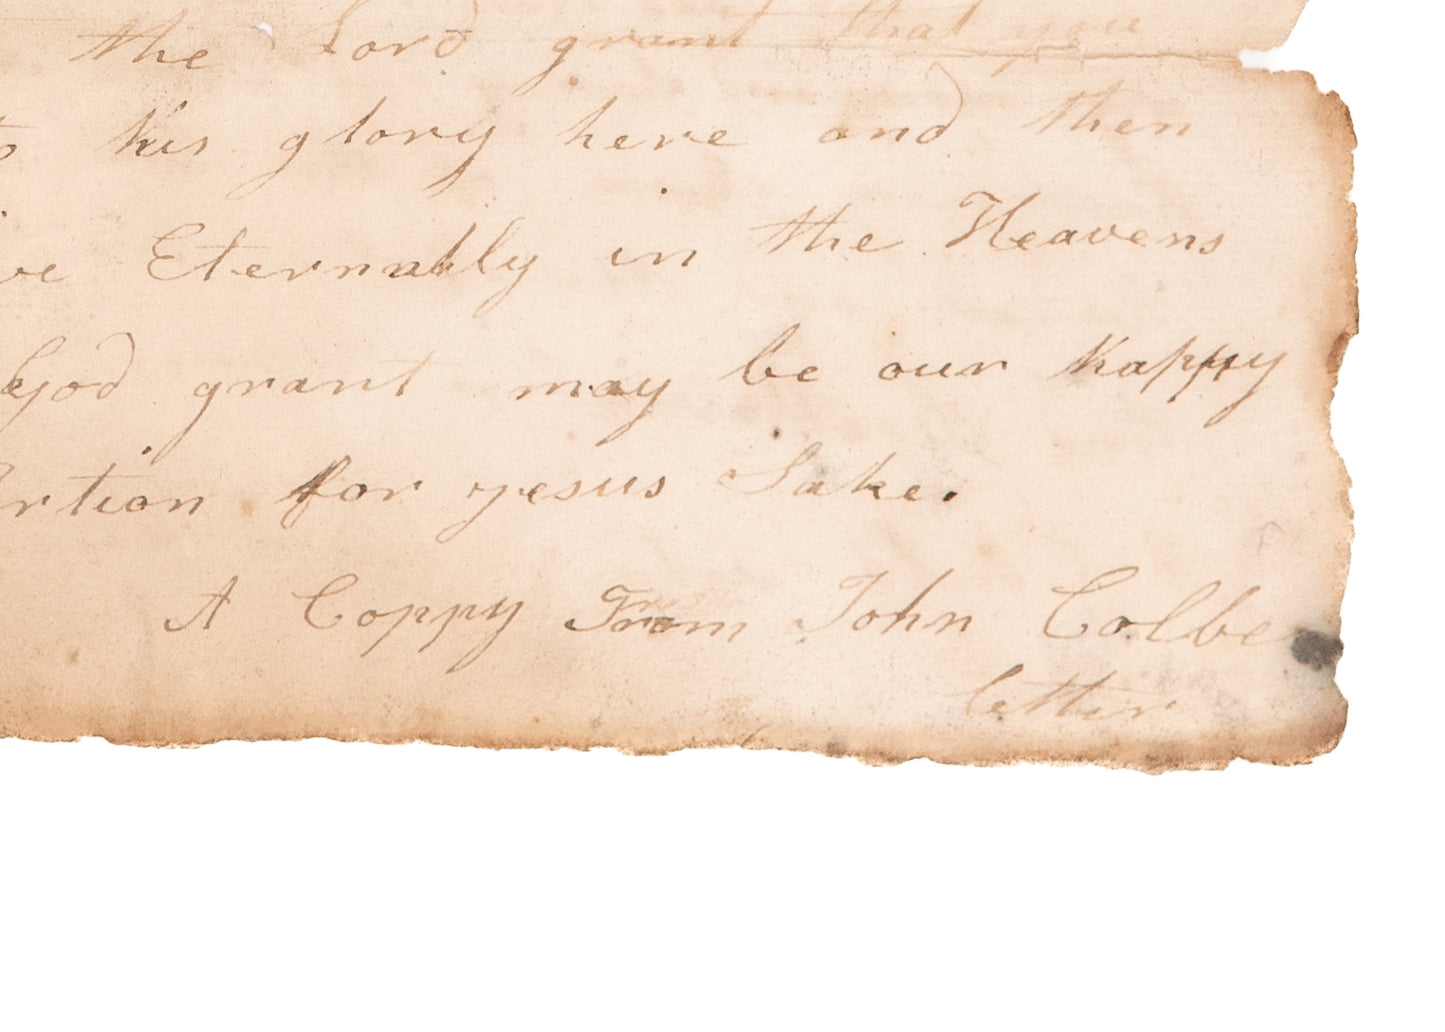 the Lord grant that you
his glory here and then
Eternally in the Heavens
God grant may be our happy
for yesus Sake.
A Coppy From John Colbe
letter